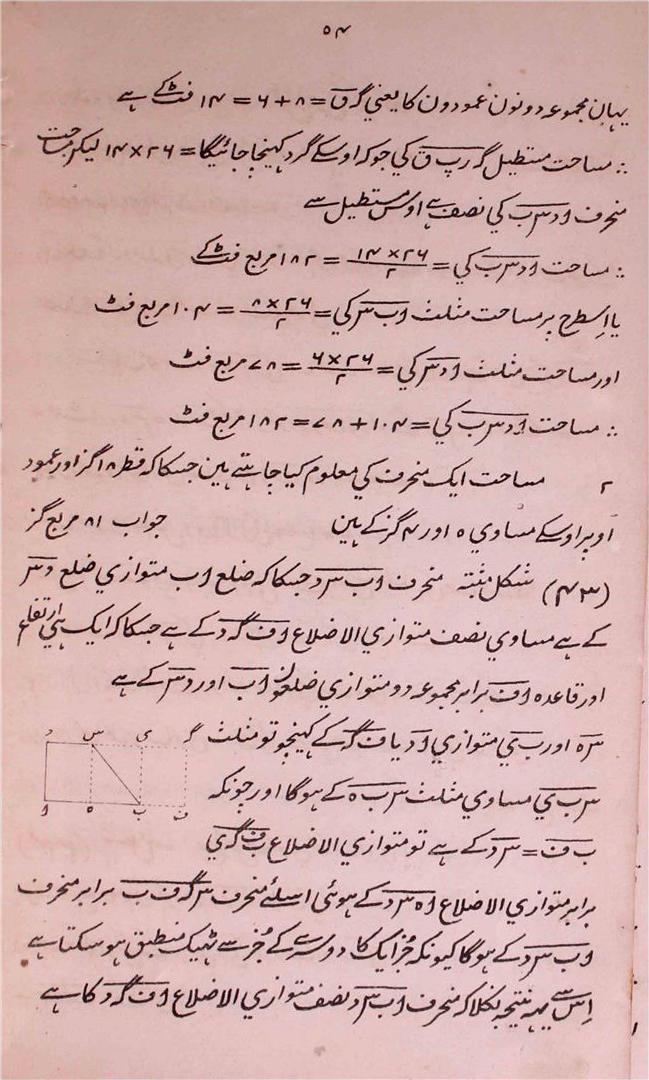 ۵۴
یہان مجموعہ دونون عمودون کا یعنی گ ق = ۸ + ۶ = ۱۴ فٹ کے ہے
∴ مساحت مستطیل گ ر پ ق کی جو کہ اوسکے گرد کھینچا جائیگا = ۲۶ × ۱۴ لیکن مساحت
منحرف ا د س ب کی نصف ہے اوس مستطیل سے
∴ مساحت ا د س ب کی = ۲۶ × ۱۴ / ۲ = ۱۸۲ مربع فٹ کے
یا اسطرح پر مساحت مثلث ا ب س کی = ۲۶ × ۸ / ۲ = ۱۰۴ مربع فٹ
اور مساحت مثلث ا د س کی = ۲۶ × ۶ / ۲ = ۷۸ مربع فٹ
∴ مساحت ا د س ب کی = ۱۰۴ + ۷۸ = ۱۸۲ مربع فٹ
۲ مساحت ایک منحرف کی معلوم کیا چاہتے ہین جسکا کہ قطر ۱۸ گز اور عمود
اوپر اوسکے مساوی ۵ اور ۴ گز کے ہین جواب ۸۱ مربع گز
(۴۳) شکل مثبتہ منحرف ا ب س د جسکا کہ ضلع ا ب متوازی ضلع د س
کے ہے مساوی نصف متوازی الاضلاع ا ف گ د کے ہے جسکا کہ ایک ہی ارتفاع
اور قاعدہ ا ف برابر مجموعہ دو متوازی ضلعون ا ب اور د س کے ہے
س ہ اور ب ی متوازی ا د یا ف گ کے کھینچو تو مثلث
س ب ی مساوی مثلث س ب ہ کے ہوگا اور چونکہ
ب ف = س د کے ہے تو متوازی الاضلاع ب ف گ ی
برابر متوازی الاضلاع ا ہ س د کے ہوئی اسلئے منحرف س گ ف ب برابر منحرف
ا ب س د کے ہوگا کیونکہ جُز ایک کا دوسرے کے جُز سے ٹھیک منطبق ہو سکتا ہے
اِس سے یہہ نتیجہ نکلا کہ منحرف ا ب س د نصف متوازی الاضلاع ا ف گ د کا ہے
د س ی گ
ا ہ ب ف